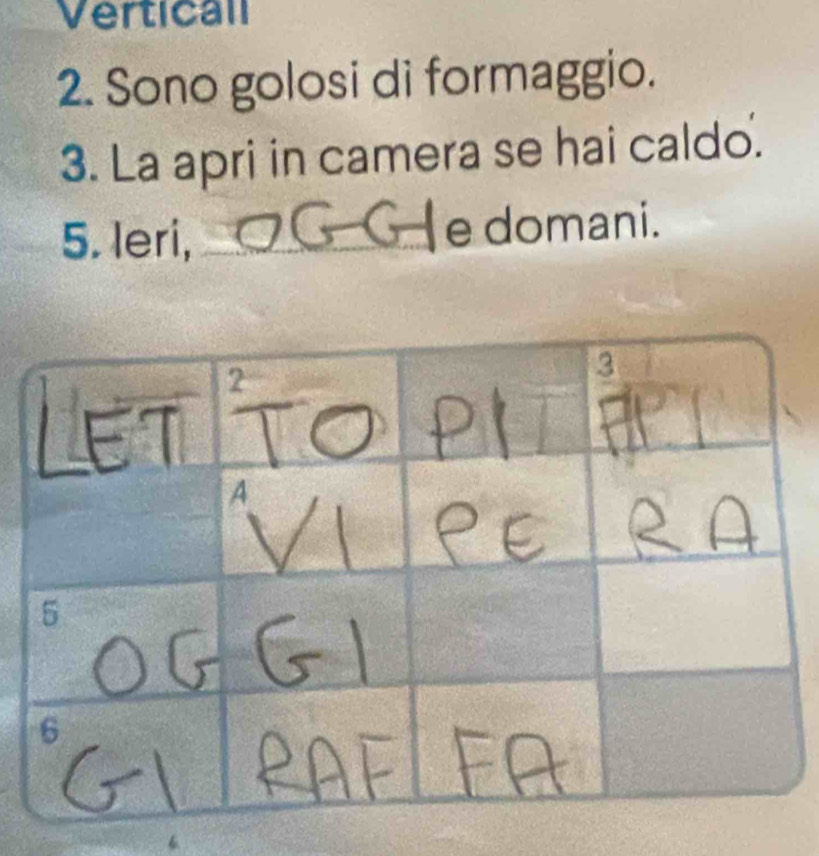 Verticali
2. Sono golosi di formaggio.
3. La apri in camera se hai caldo.
5. Ieri, OGGI e domani.
2 3
LET TO PI
4
VI PE RA
5
OG GI
6
GI RAF FA